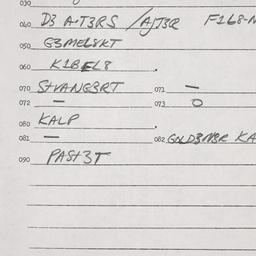 030
040 D3 A·T3RS /AJT3R F168-N
050 G3MEL8KT
060 K1BEL8 .
070 STVANG3RT 071 —
072 — 073 O
080 KALP
081 — 082 GOLD3N3R KA
090 PAST3T